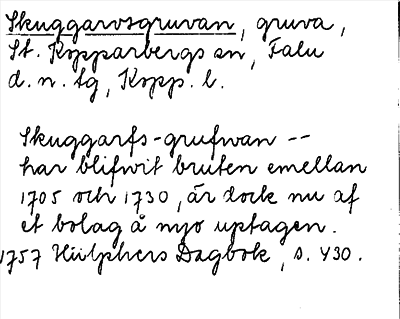 Skuggarvsgruvan, gruva,
St. Kopparbergs sn, Falu
d. n. tg, Kopp. l.
Skuggarfs-grufwan --
har blifwit bruten emellan
1705 och 1730, är dock nu af
et bolag å nyo uptagen.
1757 Hülphers Dagbok, s. 430.